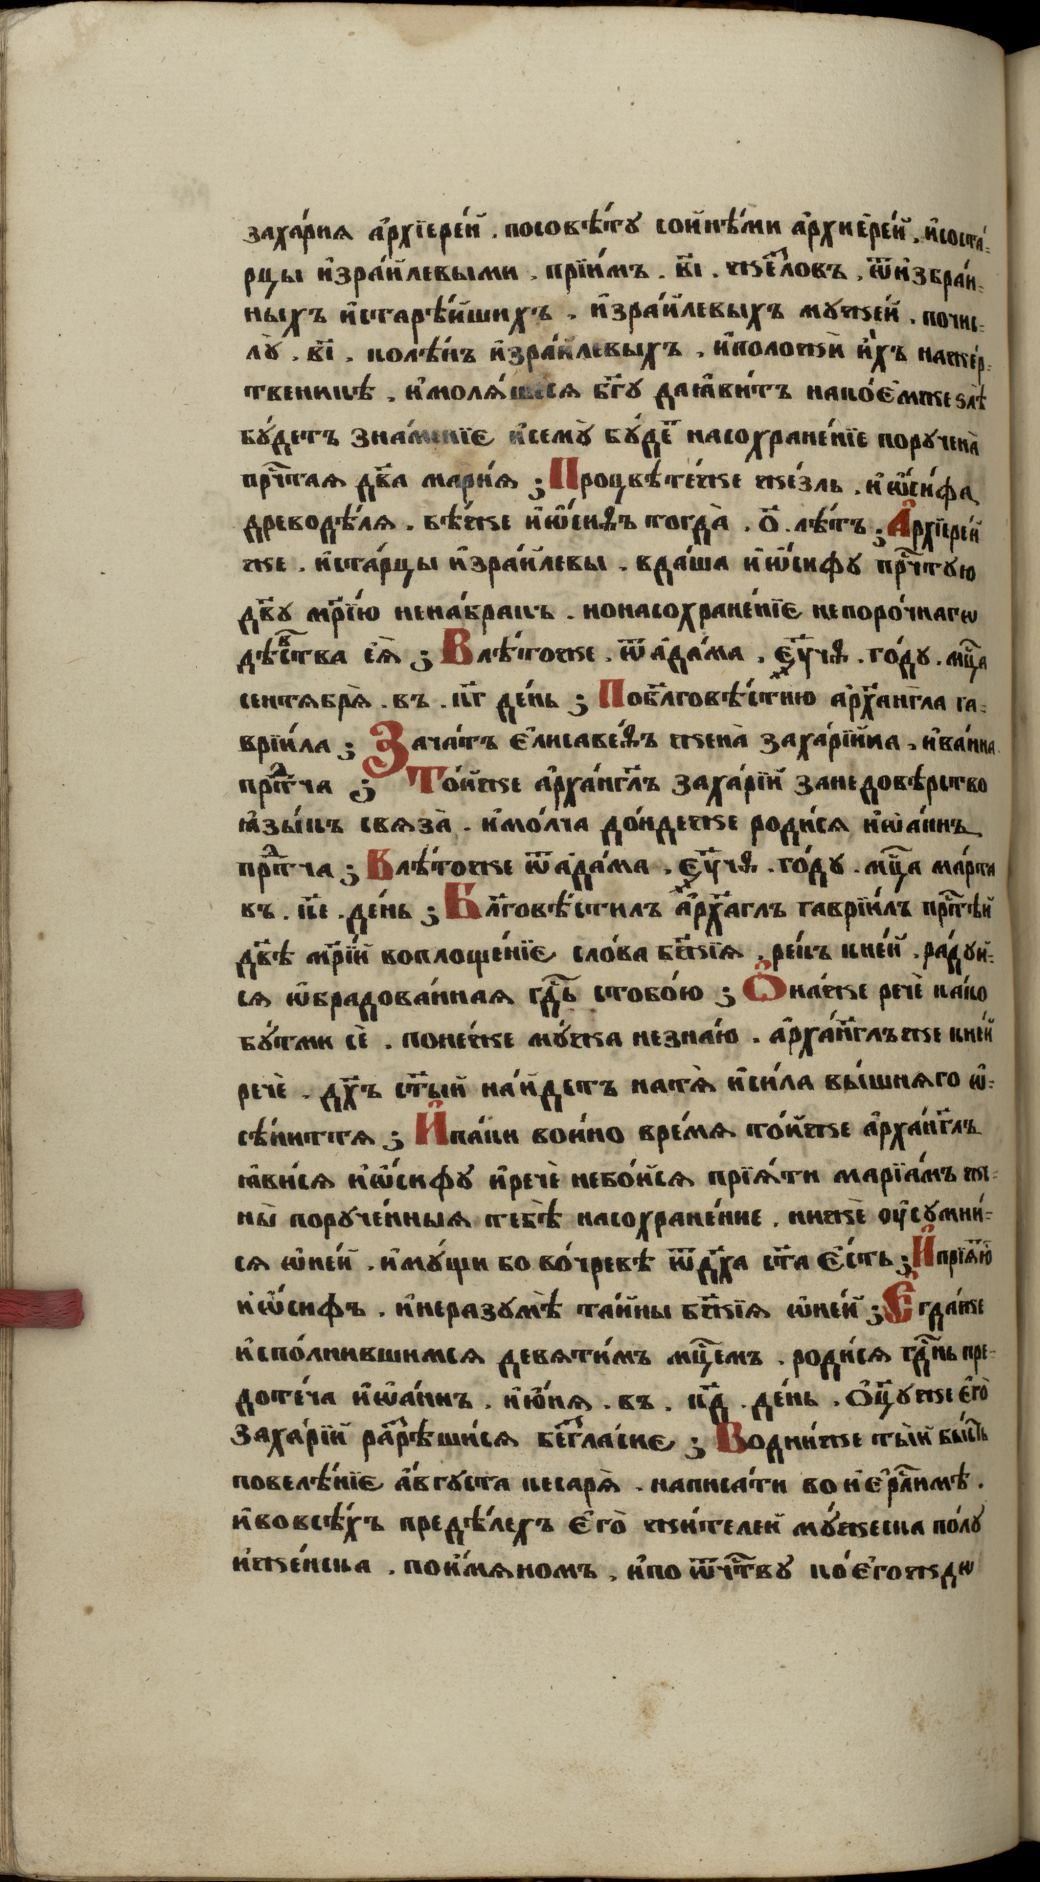 заха́рия а҆рхїере́й . посовѣ́ту сои҆нѣ́ми а҆рхие҆ре́й . и҆соста́-
рцы и҆зра́и҆левыми . прїи́мъ . в҃і . жѕе́зловъ . ѿи҆збра́н-
ныхъ и҆старѣ́йшихъ . и҆зра́и҆левыхъ муже́й . почис-
лу̀ . в҃і . колѣ́нъ и҆зра́и҆левыхъ . и҆положѝ и҆́хъ нажже́р-
твенникѣ . и҆моля́шеся бг҃у даꙗ҆ви́тъ нако́е҆мже ѕлѣ
бу́детъ зна́менїе и҆сему̀ бу́де насохране́нїе поруче́на
прч҃тая дв҃а мари́я ; Процвѣте́же же́злъ . и҆ѡ҆́сифа
древодѣ́ля . бѣ́же и҆ѡ҆́сиѳъ тогда̀ . п҃ . лѣ́тъ ; А҆рхїере́й
же . и҆ста́рцы и҆зра́и҆левы . вда́ша и҆ѡ҆́сифу прч҃тую
дв҃у мр҃і́ю нена́бракъ . нонасохране́нїе непоро́чнагѡ
дѣ́вства ея̀ ; Влѣ́тоже . ѿа҆да́ма . ҂є҃уч҃ѳ . го́ду . мц҃а
сентября̀ . въ . к҃г де́нь ; Побл҃говѣ́стию а҆рха́нгла га-
врїи́ла ; Зача́тъ е҆лисаве́ѳъ жена̀ заха́рїина . и҆ва́нна
прⷣтча ; То́йже а҆рха́нг҃лъ заха́рїй занедовѣ́рство
ꙗ҆зы́къ связа̀ . и҆мо́лча до́ндеже роди́ся и҆ѡ҆а́ннъ
прⷣтча ; Влѣ́тоже ѿа҆да́ма . ҂є҃уч҃ѳ . го́ду . мц҃а ма́рта
въ . к҃е . де́нь ; Бл҃говѣ́стилъ а҆рха́гглъ гаврїи́лъ прч҃тѣй
дв҃ѣ мр҃і́й воплоще́нїе сло́ва бж҃їя . ре́къ кне́й . ра́дуй-
ся ѡ҆брадова́нная гд҃ь стобо́ю ; О҆на́же речѐ ка́ко
бу́тми сѐ . поне́же му́жа незна́ю . а҆рха́нг҃лъже кне́й
речѐ . дх҃ъ ст҃ый на́йдетъ натя̀ и҆си́ла вы́шняго ѡ҆-
сѣни́ття ; И҆па́ки во и҆но вре́мя то́йже а҆рха́нг҃лъ
ꙗ҆ви́ся и҆ѡ҆́сифу и҆речѐ небо́йся прїя́ти марїа́мъ же-
ны̀ поруче́нныя тебѣ̀ насохране́ние . нижѐ оу҆сумни́-
ся ѡ҆не́й . и҆му́щи бо во́чревѣ ѿдх҃а ст҃а е҆́сть ; И҆прїя́ю
и҆ѡ҆́сифъ . и҆неразумѣ̀ та́йны бж҃їя ѡ҆не́й ; Е҆гда́же
и҆спо́лнившимся девяти́мъ мц҃емъ . роди́ся гд҃нь пре-
доте́ча и҆ѡ҆а́ннъ . и҆ю҆ня . въ . к҃д . де́нь . ѻ҆ц҃уже е҆го̀
заха́рїй разрѣши́ся безгла́сие ; Водни́же ты́й бы́сть
повелѣ́нїе а҆вгуста кесаря̀ . написа́ти во и҆е҆рл҃имѣ .
и҆вовсѣ́хъ предѣ́лехъ е҆го̀ жи́телей му́жеска полу
и҆же́нска . пои҆мяномъ . и҆по ѿч҃тву ко́е҆гождѡ